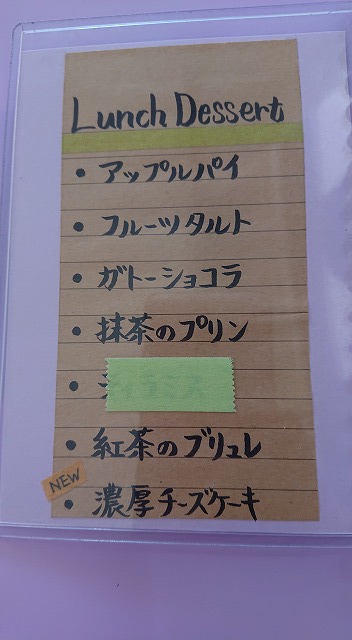 Lunch Dessert
• アップルパイ
• フルーツタルト
• ガトーショコラ
• 抹茶のプリン
•
• 紅茶のブリュレ
NEW
• 濃厚チーズケーキ